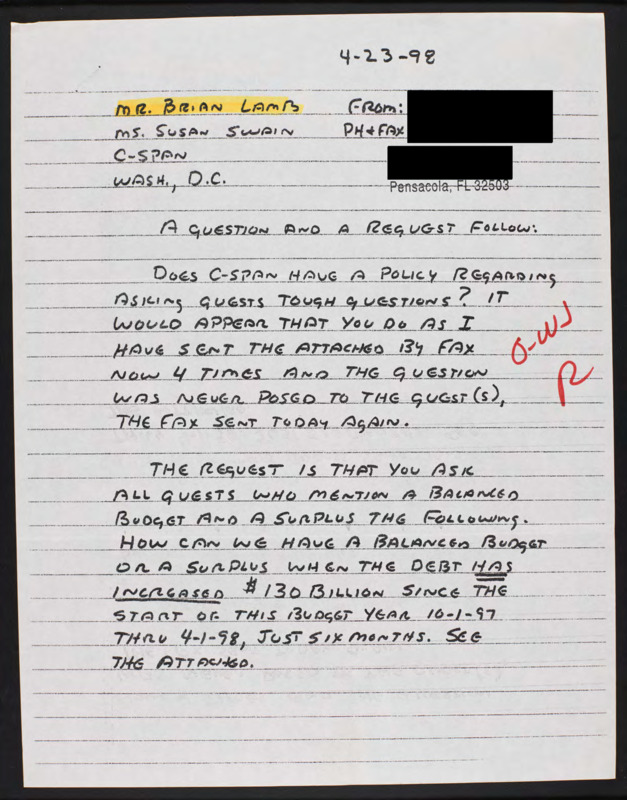 4-23-98
MR. BRIAN LAMB FROM:
MS. SUSAN SWAIN PH & FAX
C-SPAN
WASH., D.C.
Pensacola, FL 32503
A QUESTION AND A REQUEST FOLLOW:
DOES C-SPAN HAVE A POLICY REGARDING
ASKING GUESTS TOUGH QUESTIONS? IT
WOULD APPEAR THAT YOU DO AS I
HAVE SENT THE ATTACHED BY FAX
NOW 4 TIMES AND THE QUESTION
WAS NEVER POSED TO THE GUEST(S),
THE FAX SENT TODAY AGAIN.
O-WJ
R
THE REQUEST IS THAT YOU ASK
ALL GUESTS WHO MENTION A BALANCED
BUDGET AND A SURPLUS THE FOLLOWING.
HOW CAN WE HAVE A BALANCED BUDGET
OR A SURPLUS WHEN THE DEBT HAS
INCREASED $130 BILLION SINCE THE
START OF THIS BUDGET YEAR 10-1-97
THRU 4-1-98, JUST SIX MONTHS. SEE
THE ATTACHED.